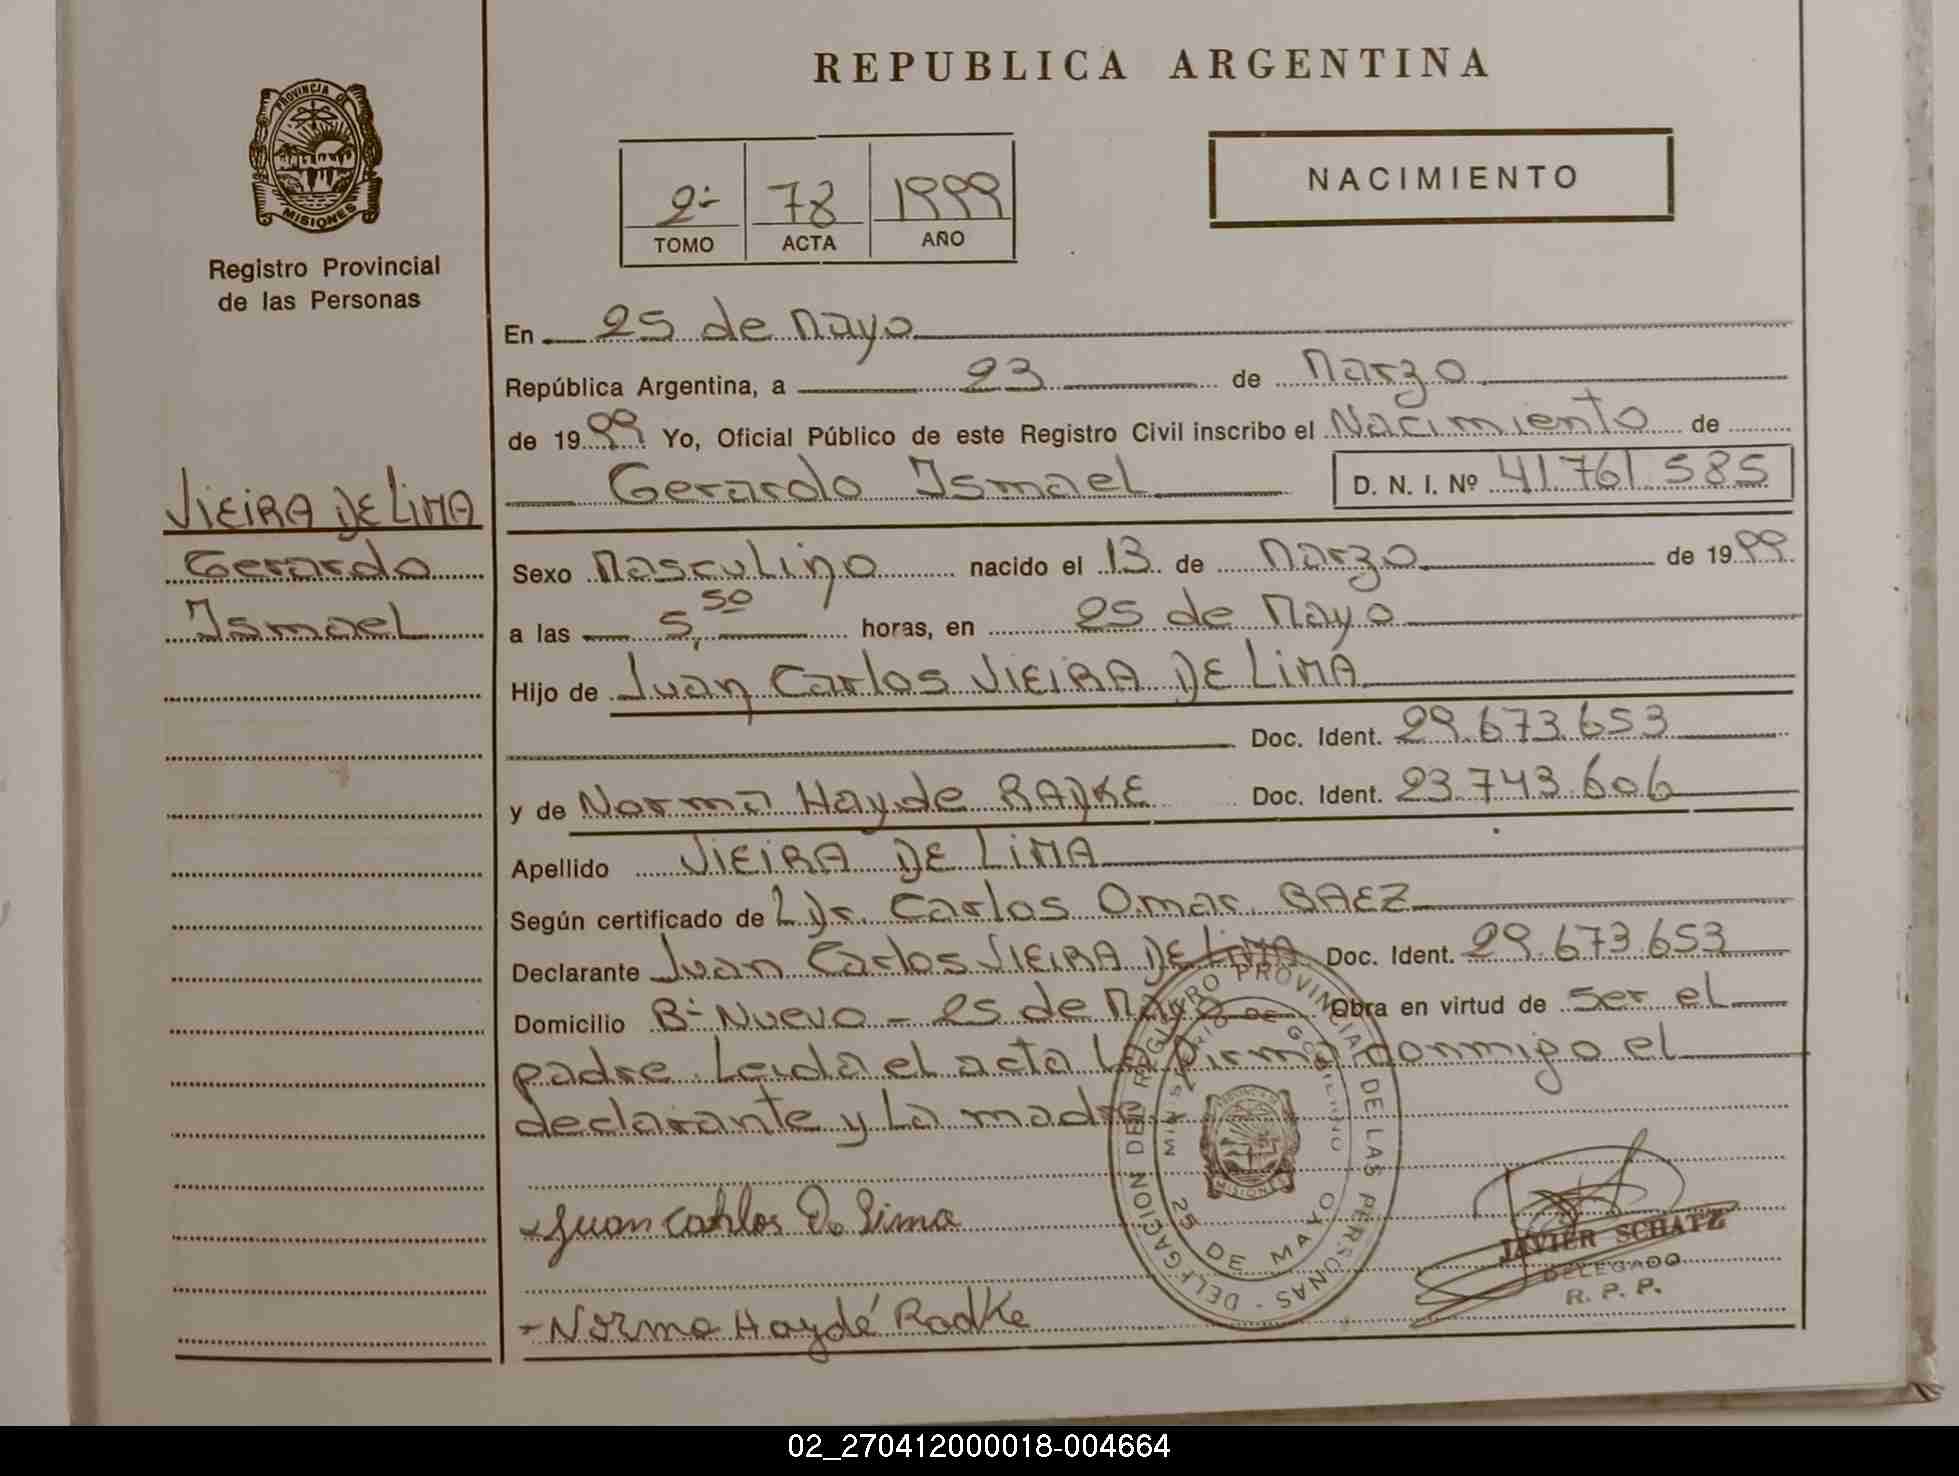 REPUBLICA ARGENTINA
PROVINCIA DE
MISIONES
Registro Provincial
de las Personas
2º 78 1999
TOMO ACTA AÑO
NACIMIENTO
En 25 de Mayo
República Argentina, a 23 de Marzo
de 1999 Yo, Oficial Público de este Registro Civil inscribo el Nacimiento de
Gerardo Ismael D. N. I. Nº 41.761.585
VIEIRA DE LIMA
Gerardo
Ismael
Sexo Masculino nacido el 13 de Marzo de 1999
a las 5,50 horas, en 25 de Mayo
Hijo de Juan Carlos VIEIRA DE LIMA
Doc. Ident. 29.673.653
y de Norma Hayde RADKE Doc. Ident. 23.743.606
Apellido VIEIRA DE LIMA
Según certificado de Dr. Carlos Omar BAEZ
Declarante Juan Carlos VIEIRA DE LIMA Doc. Ident. 29.673.653
Domicilio Bº Nuevo - 25 de Mayo Obra en virtud de ser el
padre. Leida el acta la firma conmigo el
declarante y La madre
Juan Carlos De Lima
- Norma Haydé Radke
REGISTRO PROVINCIAL DE LAS PERSONAS - DELEGACION
MINISTERIO DE GOBIERNO
MISIONES
25 DE MAYO
JAVIER SCHATZ
DELEGADO
R. P. P.
02_270412000018-004664